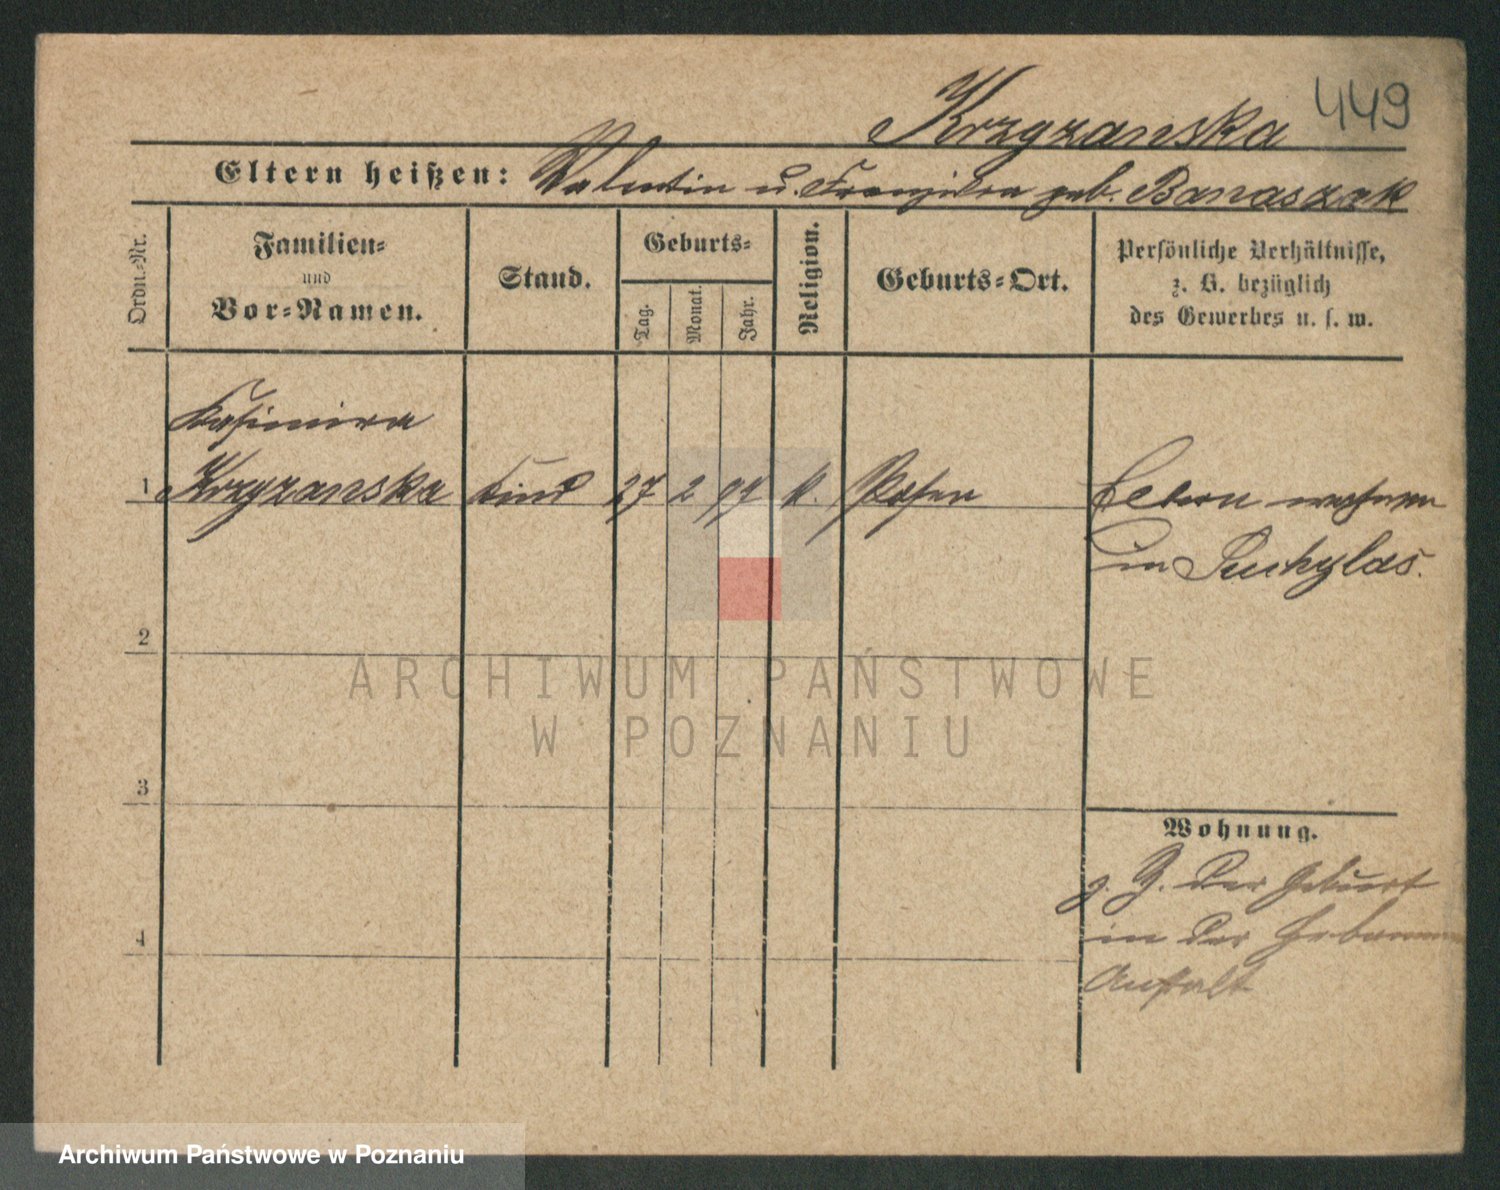 Krzyzanska 449
Eltern heißen: Valentin u. Franziska geb. Banaszak
Ordn.-Nr.
Familien-
und
Vor-Namen.
Stand.
Geburts-
Tag.
Monat.
Jahr.
Religion.
Geburts-Ort.
Persönliche Verhältnisse,
z. B. bezüglich
des Gewerbes u. s. w.
Kasimira
1 Krzyzanska Kind 27 2 97 k. Posen
Eltern wohnen
in Suchylas.
2
3
4
Wohnung.
z. Z. der Geburt
in der Hebammen
Anstalt
ARCHIWUM PAŃSTWOWE
W POZNANIU
Archiwum Państwowe w Poznaniu